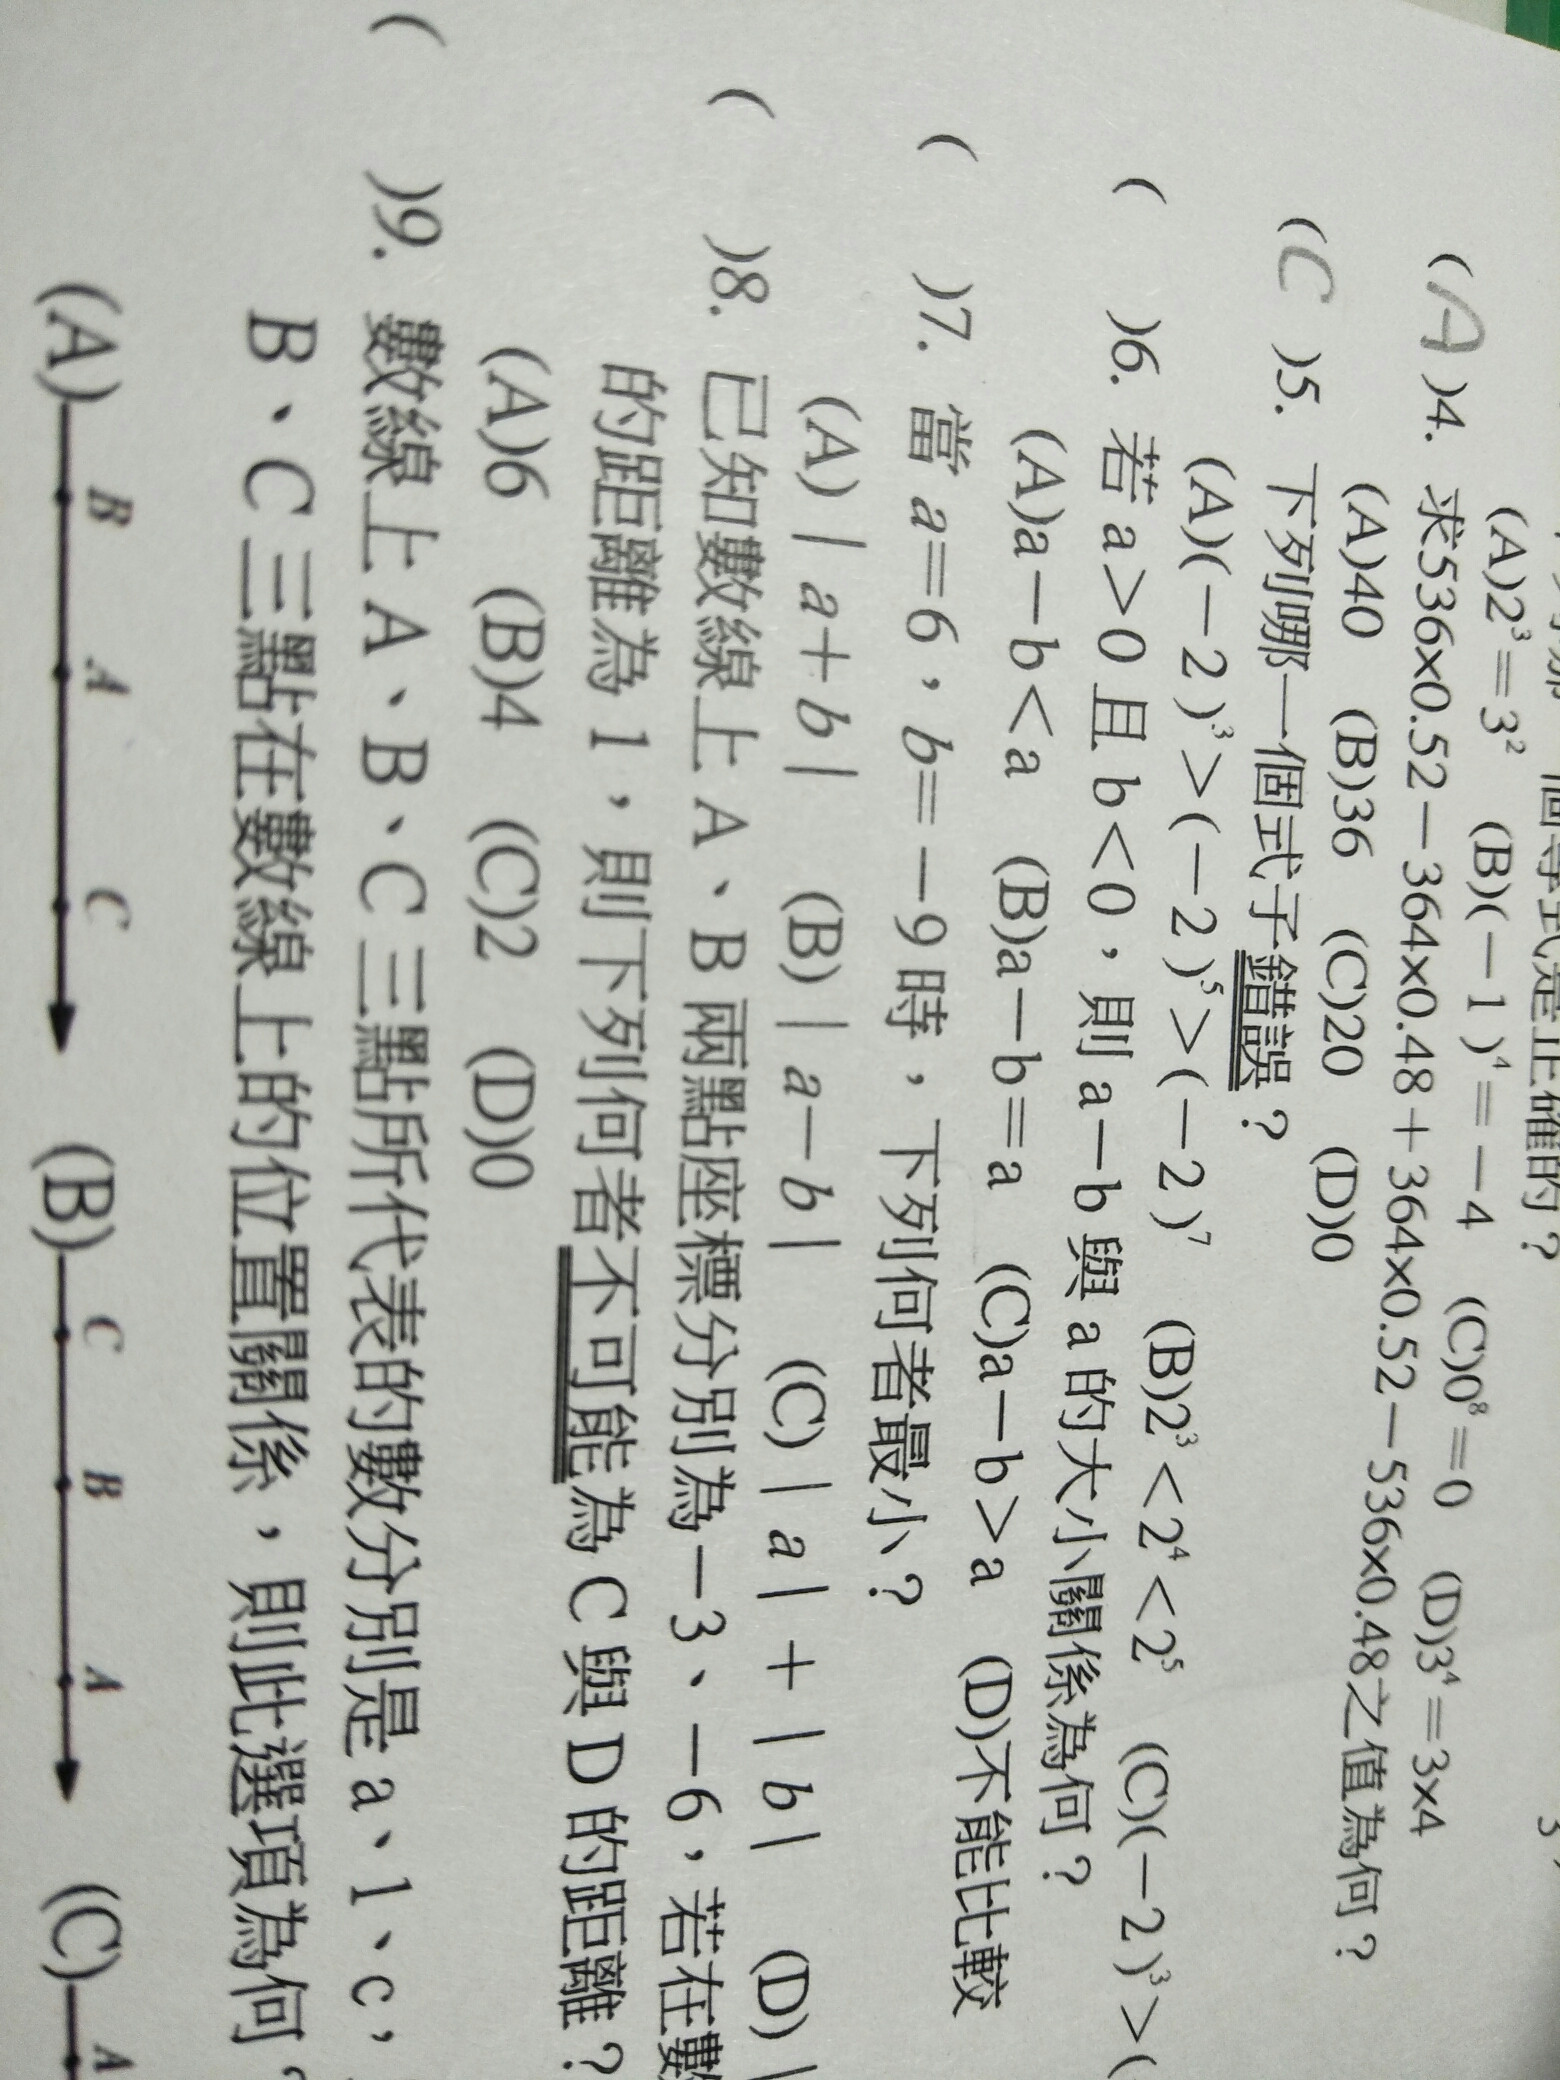 個等式是正確的？
(A)2³＝3² (B)(－1)⁴＝－4 (C)0⁸＝0 (D)3⁴＝3×4
(A)4. 求536×0.52－364×0.48＋364×0.52－536×0.48之值為何？
(A)40 (B)36 (C)20 (D)0
(C)5. 下列哪一個式子錯誤？
(A)(－2)³＞(－2)⁵＞(－2)⁷ (B)2³＜2⁴＜2⁵ (C)(－2)³＞(
( )6. 若 a＞0 且 b＜0，則 a－b 與 a 的大小關係為何？
(A)a－b＜a (B)a－b＝a (C)a－b＞a (D)不能比較
( )7. 當 a＝6，b＝－9 時，下列何者最小？
(A)｜a＋b｜ (B)｜a－b｜ (C)｜a｜＋｜b｜ (D)｜
( )8. 已知數線上 A、B 兩點座標分別為－3、－6，若在數
的距離為 1，則下列何者不可能為 C 與 D 的距離？
(A)6 (B)4 (C)2 (D)0
( )9. 數線上 A、B、C 三點所代表的數分別是 a、1、c，
B、C 三點在數線上的位置關係，則此選項為何？
(A) B A C (B) C B A (C) A